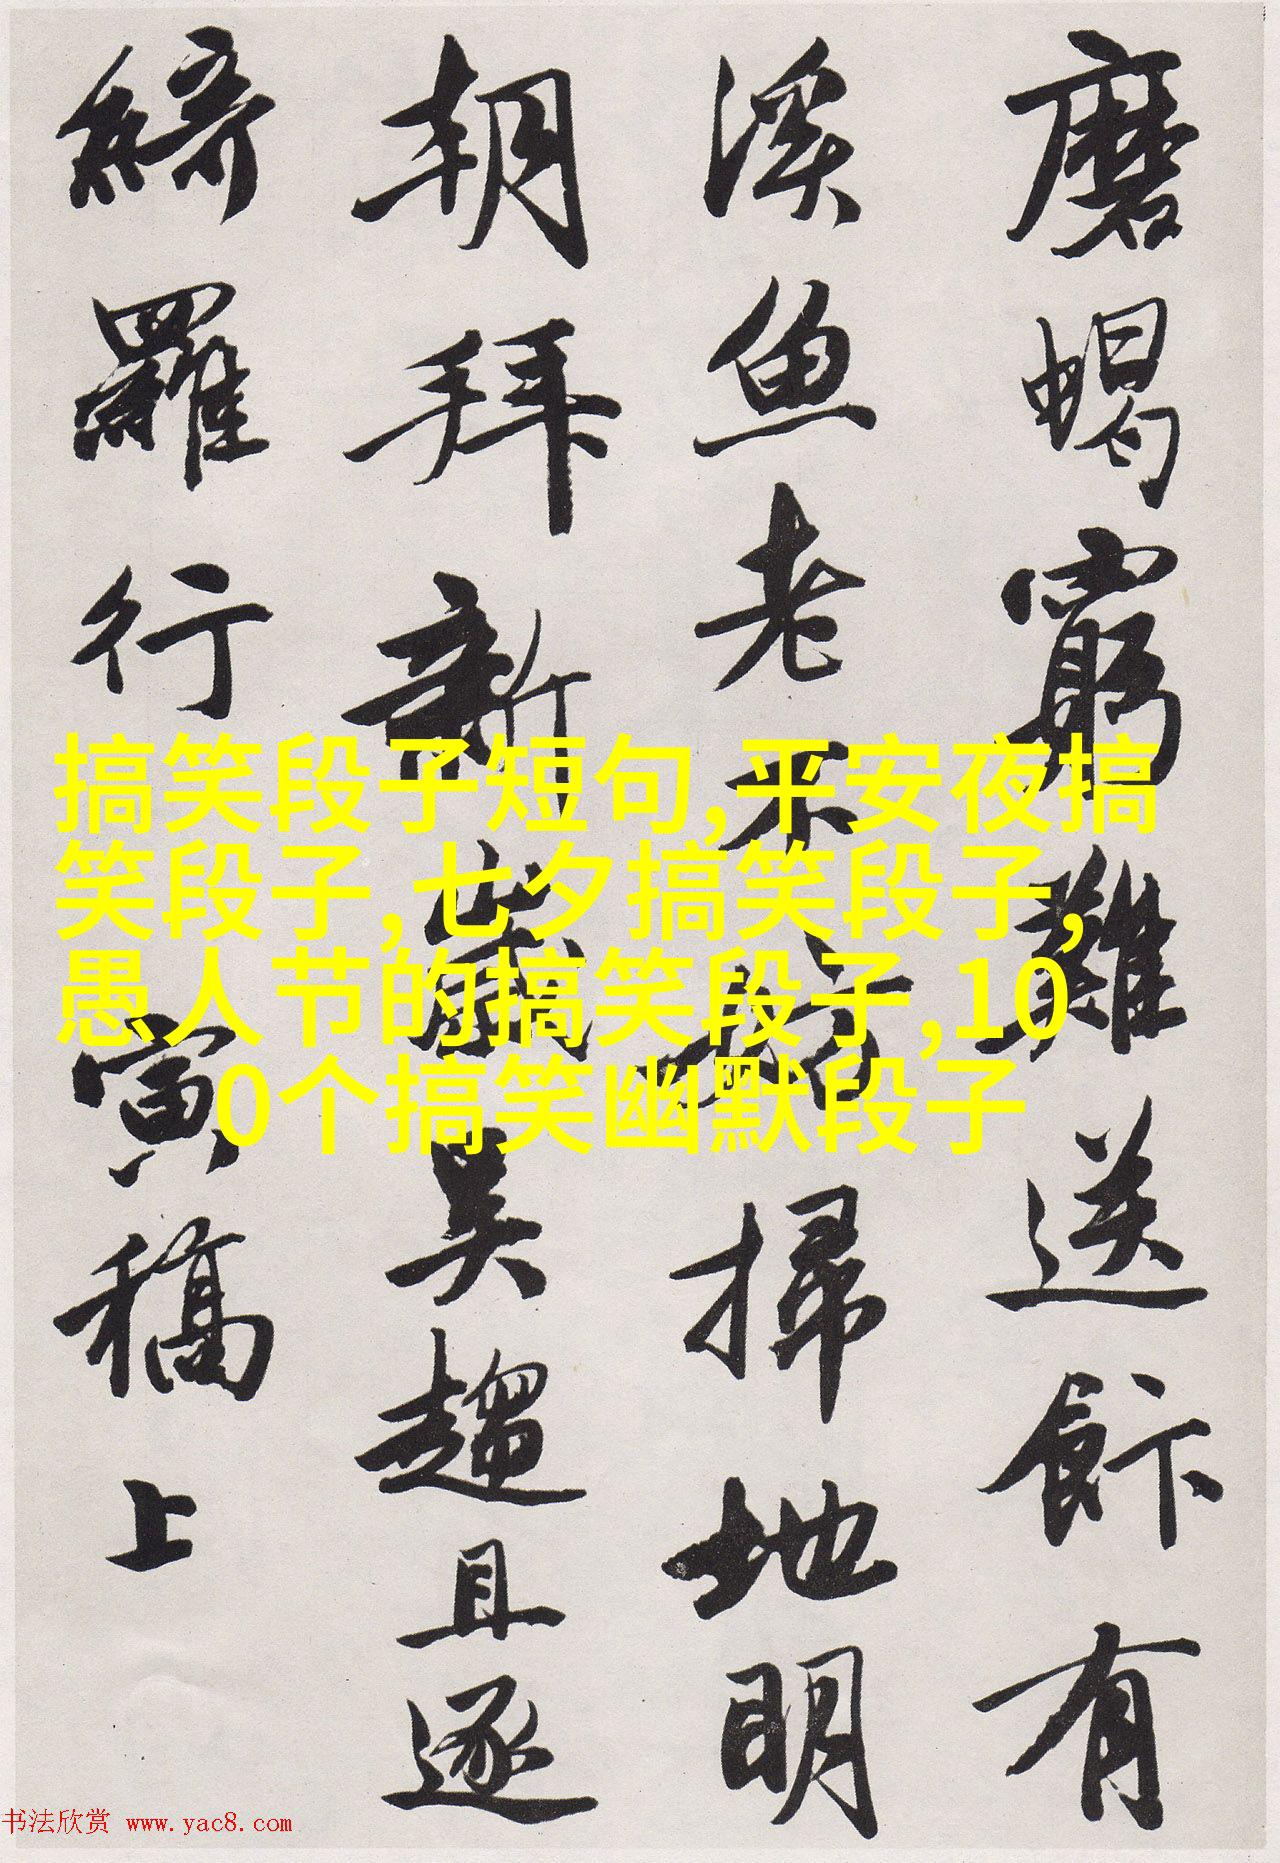 磨蝎窮難送飰有
溪魚老不妨掃地明
朝拜新歲吳趨且逐
綺羅行 寅稿上
搞笑段子短句,平安夜搞
笑段子,七夕搞笑段子,
愚人节的搞笑段子,10
0个搞笑幽默段子
书法欣赏 www.yac8.com